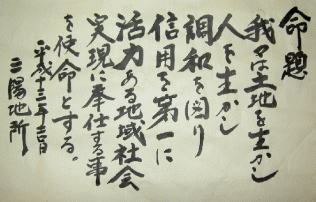 命題
我々は土地を生かし
人を生かし
調和を図り
信用を第一に
活力ある地域社会
実現に奉仕する事
を使命とする。
平成十三年十一月一日
三陽地所